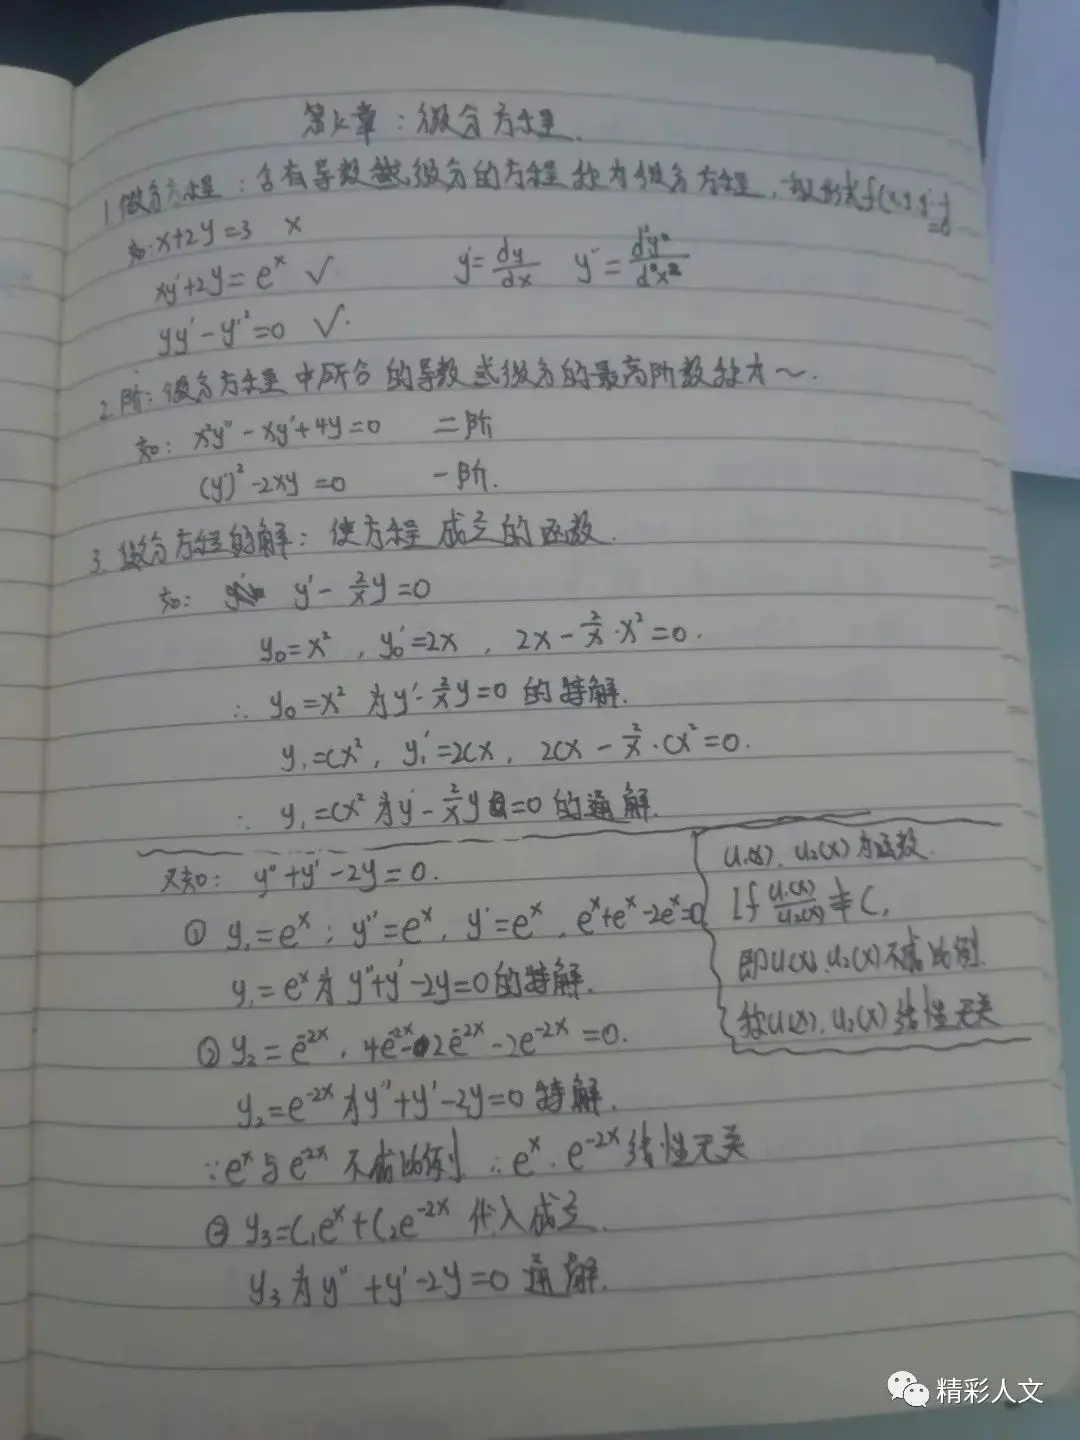 第七章：微分方程.
1.微分方程：含有导数或微分的方程称为微分方程，
如.x+2y=3 x
xy'+2y=eˣ √. y'=dy/dx y''=d²y²/d²x²
yy'-y'²=0 √.
2.阶：微分方程中所含的导数或微分的最高阶数称为~.
如：x²y''-xy'+4y=0 二阶
(y')²-2xy=0 一阶.
3.微分方程的解：使方程成立的函数.
如： y'-2/x y=0
y₀=x²，y₀'=2x，2x-2/x·x²=0.
∴ y₀=x²为y'-2/x y=0的特解.
y₁=Cx²，y₁'=2Cx，2Cx-2/x·Cx²=0.
∴ y₁=Cx²为y'-2/x y=0的通解.
又如：y''+y'-2y=0.
①y₁=eˣ；y''=eˣ，y'=eˣ，eˣ+eˣ-2eˣ=0
y₁=eˣ为y''+y'-2y=0的特解.
②y₂=e⁻²ˣ，4e⁻²ˣ-2e⁻²ˣ-2e⁻²ˣ=0.
y₂=e⁻²ˣ为y''+y'-2y=0特解.
∵eˣ与e⁻²ˣ不成比例 ∴eˣ，e⁻²ˣ线性无关
③y₃=C₁eˣ+C₂e⁻²ˣ代入成立.
y₃为y''+y'-2y=0通解.
u₁(x)，u₂(x)为函数.
If u₁(x)/u₂(x)≢C，
即u₁(x)，u₂(x)不成比例.
称u₁(x)，u₂(x)线性无关
精彩人文